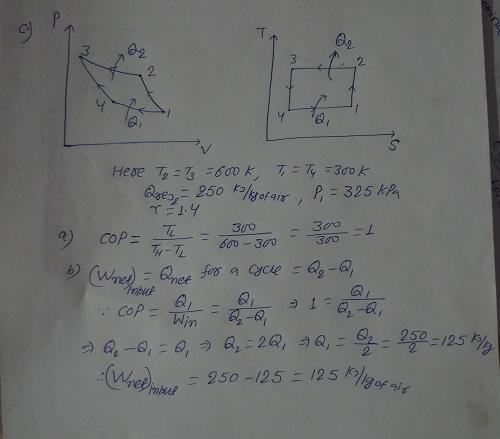 c)
P
3
Q2
2
4
Q1
1
V
T
Q2
3
2
4
Q1
1
S
Here T2 = T3 = 600 K, T1 = T4 = 300 K
Qrej = 250 KJ/kg of air, P1 = 325 KPa
r = 1.4
a) COP = TL/(TH - TL) = 300/(600 - 300) = 300/300 = 1
b) (Wnet)input = Qnet for a cycle = Q2 - Q1
∵ COP = Q1/Win = Q1/(Q2 - Q1) ⇒ 1 = Q1/(Q2 - Q1)
⇒ Q2 - Q1 = Q1 ⇒ Q2 = 2Q1 ⇒ Q1 = Q2/2 = 250/2 = 125 KJ/kg
∴ (Wnet)input = 250 - 125 = 125 KJ/kg of air